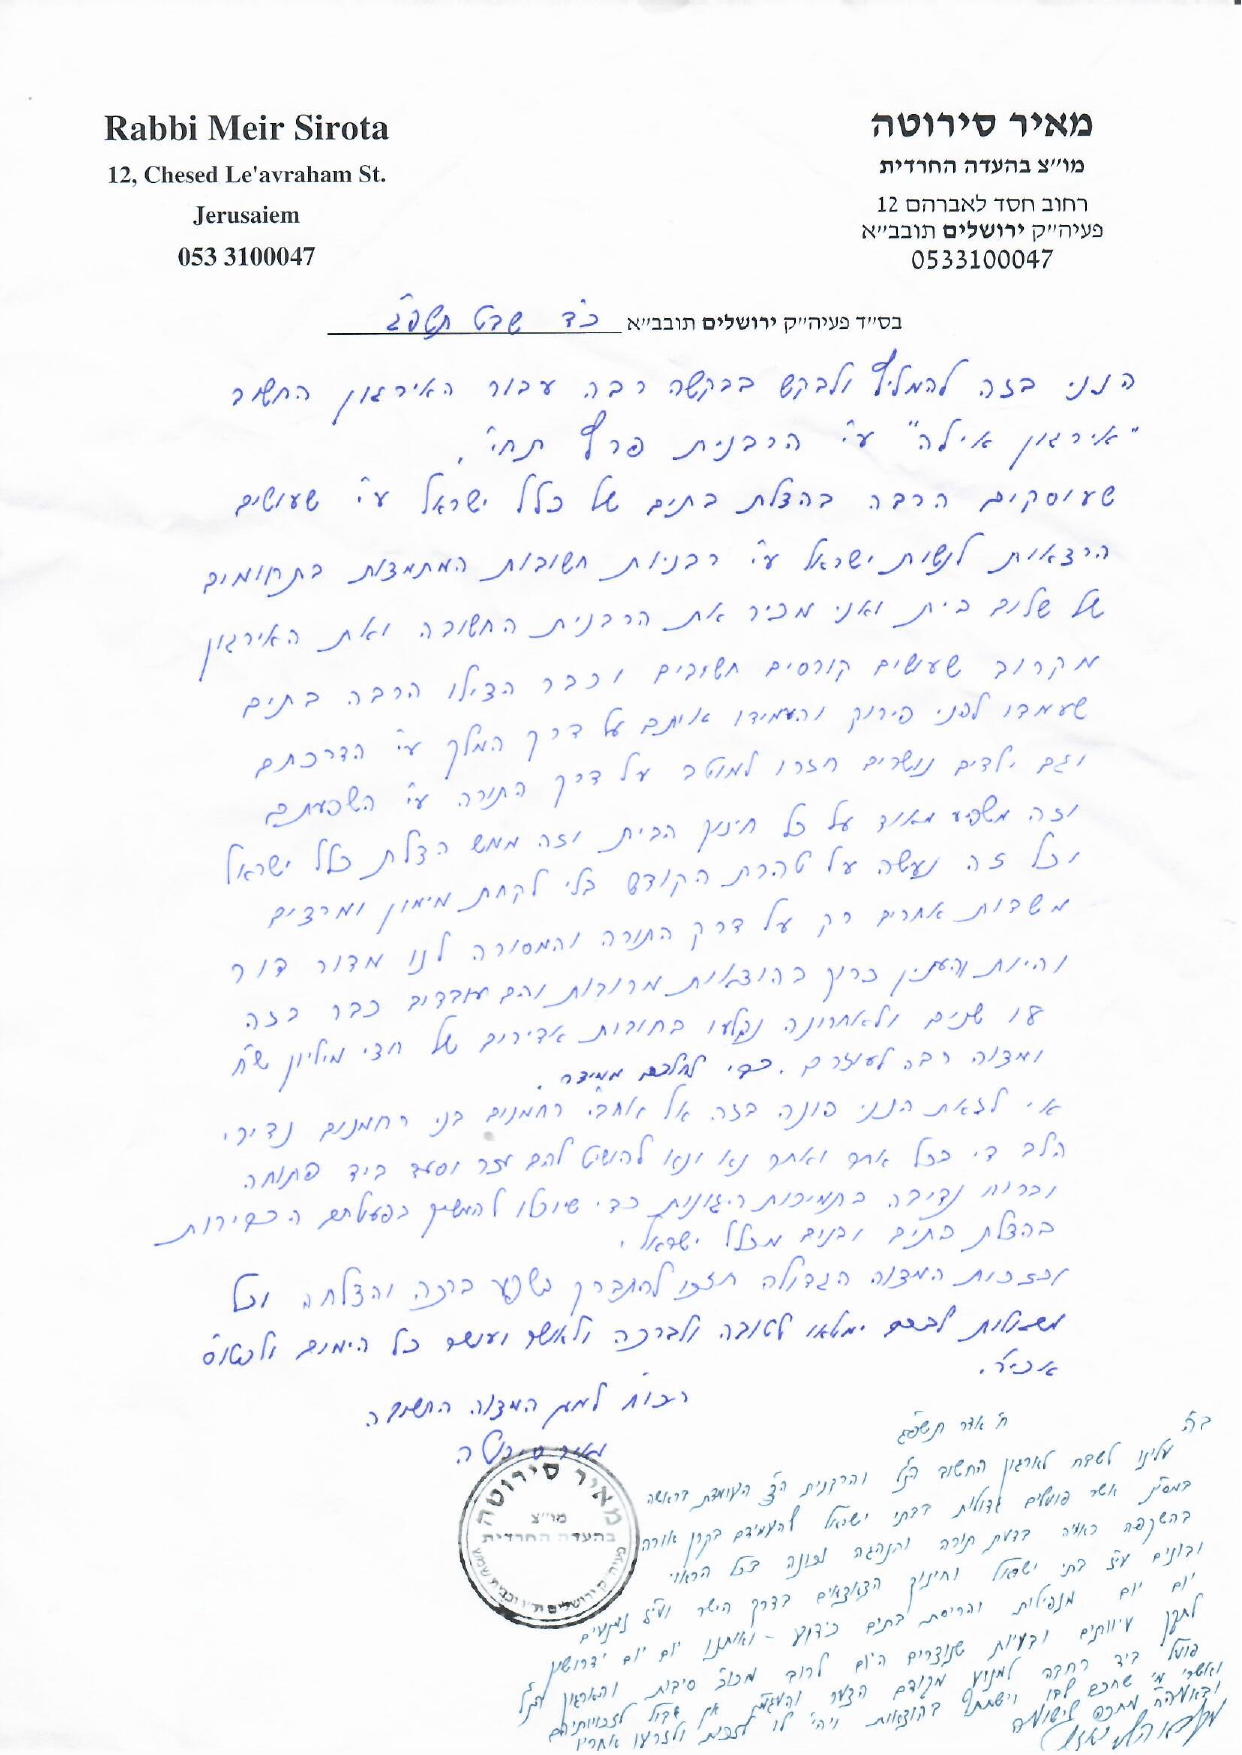 Rabbi Meir Sirota
12, Chesed Le'avraham St.
Jerusaiem
053 3100047
מאיר סירוטה
מו״צ בהעדה החרדית
רחוב חסד לאברהם 12
פעיה״ק ירושלים תובב״א
0533100047
בס״ד פעיה״ק ירושלים תובב״א כ״ד שבט תשפ״ג
הנני בזה להמליץ ולבקש בבקשה רבה עבור האירגון החשוב
"אירגון אילה" ע״י הרבנית פרץ תחי׳,
שעוסקים הרבה בהצלת בתים של כלל ישראל ע״י שעושים
הרצאות לנשות ישראל ע״י רבניות חשובות המתמצות בתחומים
של שלום בית ואני מכיר את הרבנית החשובה ואת האירגון
מקרוב שעושים קורסים חשובים וכבר הצילו הרבה בתים
שעמדו לפני פירוק והעמידו אותם על דרך המלך ע״י הדרכתם
וגם ילדים נושרים חזרו למוטב על דרך התורה ע״י השפעתם
וזה משפיע מאוד על כל חינוך הבית וזה ממש הצלת כלל ישראל
וכל זה נעשה על טהרת הקודש בלי לקחת מימון ומרצים
משדות אחרים רק על דרך התורה והמסורה לנו מדור דור
והיות והענין כרוך בהוצאות מרובות והם עובדים כבר בזה
18 שנים ולאחרונה נקלעו בחובות אדירים של חצי מיליון ש״ח
ומצוה רבה לעוזרם. כדי לחלצם ממיצר.
אי לזאת הנני פונה בזה אל אחב״י רחמנים בני רחמנים נדיבי
הלב די בכל אתר ואתר נא ונא להושיט להם עזר וסעד ביד פתוחה
וברוח נדיבה בתמיכות הגונות כדי שיוכלו להמשיך בפעולתם הכבירות
בהצלת בתים ובנים מכלל ישראל.
ובזכות המצוה הגדולה תזכו להתברך בשפע ברכה והצלחה וכל
משאלות לבכם ימלאו לטובה ולברכה ולאושר ועושר כל הימים ולכט״ס
אכי״ר.
רבות למען המצוה החשובה
מאיר סירוטה
מאיר סירוטה
מו״צ
בהעדה החרדית
פעיה״ק ירושלים ת״ו ובבית שמש
ב״ה ח׳ אדר תשפ״ג
עלינו לשבח לארגון החשוב הנ״ל והרבנית העומדת בראשה
אשר פועלים גדולות בבתי ישראל להעמידם בקרן אורה
בהשקפה ראויה בדעת תורה והנהגה נכונה בכל הראוי
ובונים בתי ישראל וחינוך הצאצאים בדרך הישר
יום יום מנפילות והריסת בתים כידוע - ואיתנו יום יום ידרושון
לתקן עיוותים ובעיות שנוצרים היום לרוב מכמה סיבות והארגון הנ״ל
פועל ביד רחבה למנוע מקודם הצער
ואשרי מי שחכם לבו וישתתף בהוצאות ויהי׳ לו לזכות ולזרעו אחריו